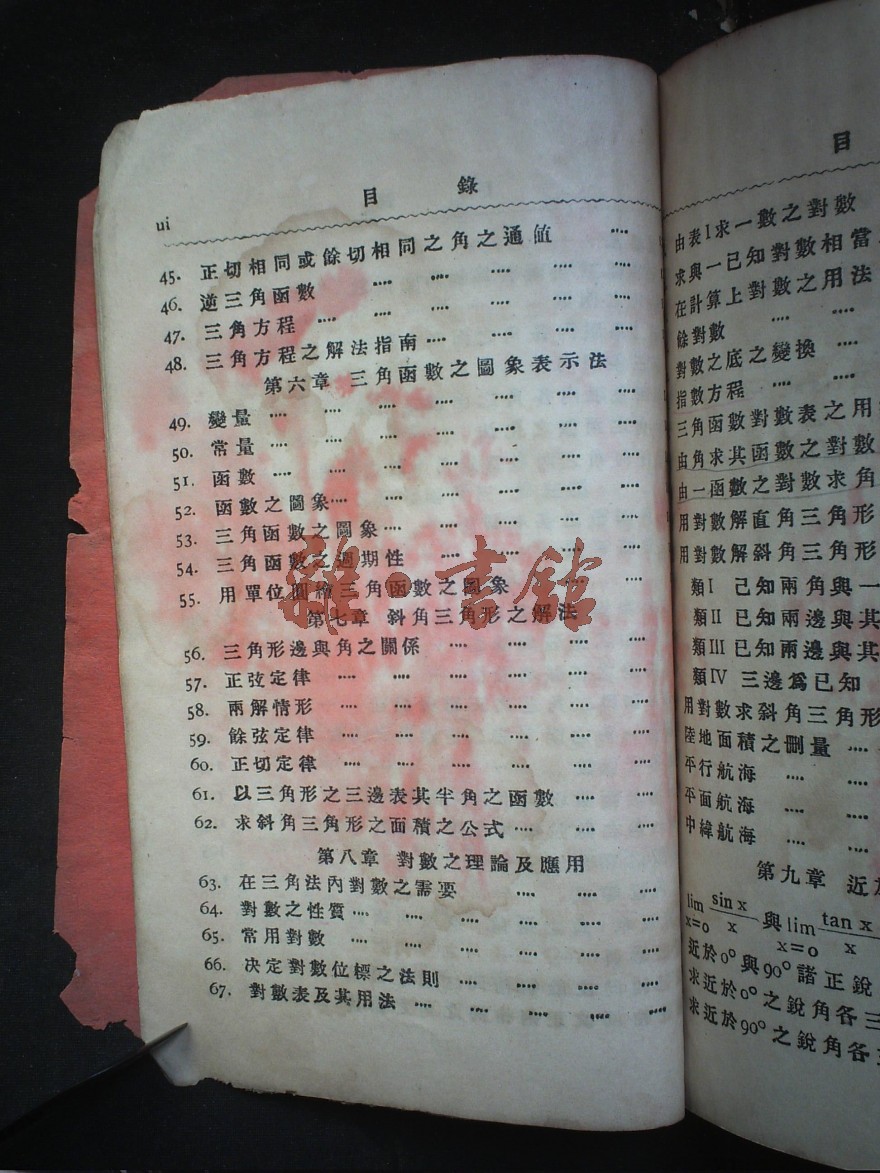 目 錄
ui
45. 正切相同或餘切相同之角之通值 ....
46. 逆三角函數 .... .... .... .... ....
47. 三角方程 .... .... .... .... .... ....
48. 三角方程之解法指南.... .... .... ....
第六章 三角函數之圖象表示法
49. 變量 .... .... .... .... .... ....
50. 常量 .... .... .... .... .... ....
51. 函數 .... .... .... .... .... ....
52. 函數之圖象.... .... .... .... ....
53. 三角函數之圖象.... .... .... ....
54. 三角函數之週期性 .... .... .... ....
55. 用單位圓繪三角函數之圖象 .... ....
第七章 斜角三角形之解法
56. 三角形邊與角之關係 .... .... .... ....
57. 正弦定律 .... .... .... .... .... ....
58. 兩解情形 .... .... .... .... .... ....
59. 餘弦定律 .... .... .... .... .... ....
60. 正切定律 .... .... .... .... .... ....
61. 以三角形之三邊表其半角之函數 .... ....
62. 求斜角三角形之面積之公式.... .... ....
第八章 對數之理論及應用
63. 在三角法內對數之需要 .... .... ....
64. 對數之性質.... .... .... .... .... ....
65. 常用對數 .... .... .... .... .... ....
66. 决定對數位標之法則 .... .... .... ....
67. 對數表及其用法 .... .... .... .... ....
目
由表I求一數之對數
求與一已知對數相當
在計算上對數之用法
餘對數 .... ....
對數之底之變換 ....
指數方程 .... ....
三角函數對數表之用
由角求其函數之對數
由一函數之對數求角
用對數解直角三角形
用對數解斜角三角形
類I 己知兩角與一
類II 已知兩邊與其
類III 已知兩邊與其
類IV 三邊爲已知
用對數求斜角三角形
陸地面積之刪量 ....
平行航海 .... ....
平面航海 .... ....
中緯航海 .... ....
第九章 近
lim x=0 sin x / x 與 lim x=0 tan x / x
近於0°與90°諸正銳
求近於0°之銳角各三
求近於90°之銳角各
雜·書館